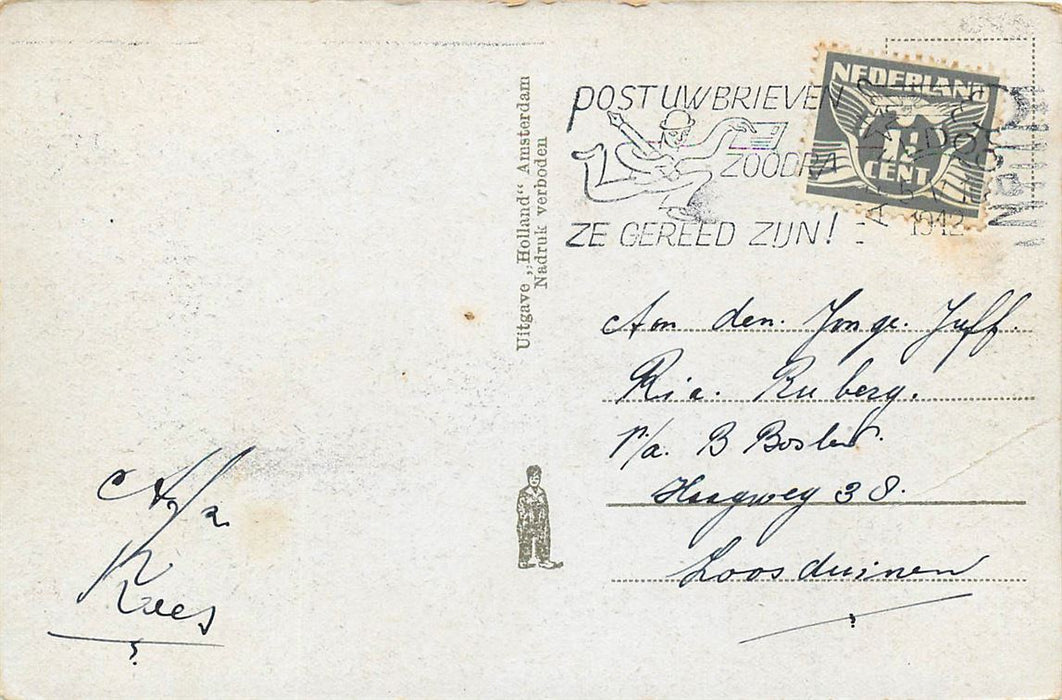 POST UW BRIEVEN
ZOODRA
ZE GEREED ZIJN!
NEDERLAND
CENT
1942
Uitgave „Holland“ Amsterdam
Nadruk verboden
Aan den. Jonge. Juff.
Ria. Ruberg.
p/a. B
Haagweg 38.
Loosduinen
Kees